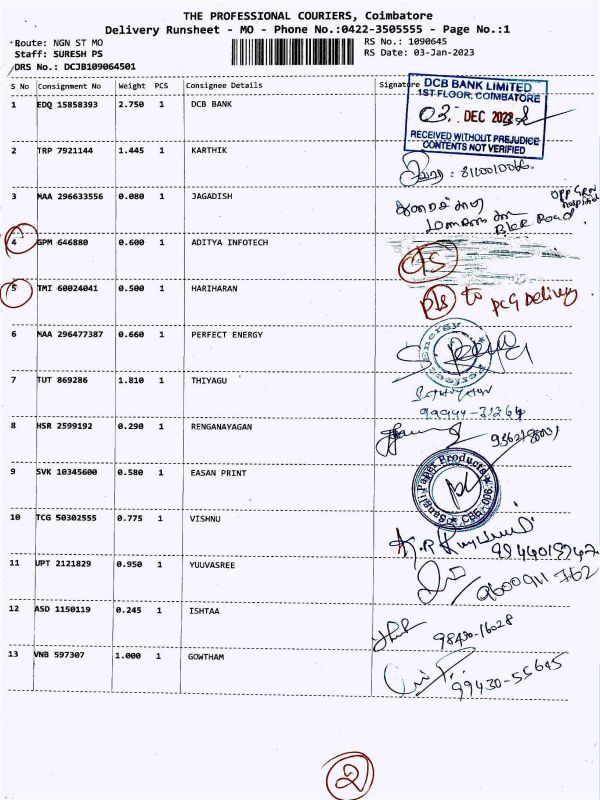 THE PROFESSIONAL COURIERS, Coimbatore
Delivery Runsheet - MO - Phone No.:0422-3505555 - Page No.:1
Route: NGN ST MO
RS No.: 1090645
Staff: SURESH PS
RS Date: 03-Jan-2023
DRS No.: DCJB109064501
S No Consignment No Weight PCS Consignee Details Signature
1 EDQ 15858393 2.750 1 DCB BANK
DCB BANK LIMITED
1ST FLOOR, COIMBATORE
03. DEC 2022
RECEIVED WITHOUT PREJUDICE
CONTENTS NOT VERIFIED
2 TRP 7921144 1.445 1 KARTHIK
3 MAA 296633556 0.080 1 JAGADISH
OPP GRN
hospital
Road
4 GPM 646880 0.600 1 ADITYA INFOTECH
O/S
5 TMI 60024041 0.500 1 HARIHARAN
to PCG Delivery.
6 MAA 296477387 0.660 1 PERFECT ENERGY
Perfect Energy
7 TUT 869286 1.810 1 THIYAGU
8 HSR 2599192 0.290 1 RENGANAYAGAN
9 SVK 10345600 0.580 1 EASAN PRINT
Paper Products
10 TCG 50302555 0.775 1 VISHNU
11 UPT 2121829 0.950 1 YUUVASREE
9600911762
12 ASD 1150119 0.245 1 ISHTAA
98430-16028
13 VNB 597307 1.000 1 GOWTHAM
99430-55645
2